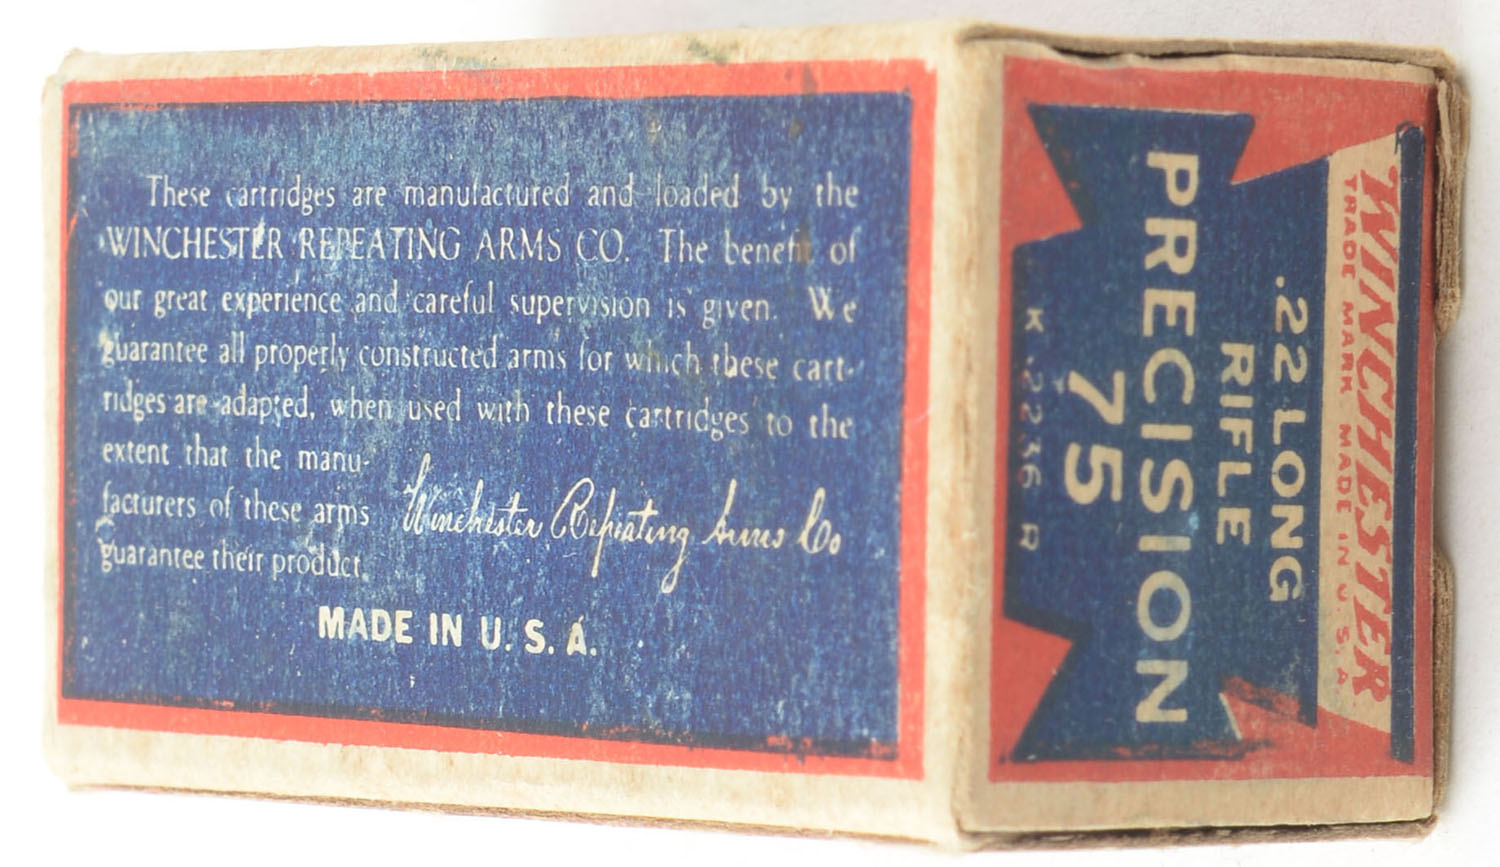 These cartridges are manufactured and loaded by the
WINCHESTER REPEATING ARMS CO. The benefit of
our great experience and careful supervision is given. We
guarantee all properly constructed arms for which these cart-
ridges are adapted, when used with these cartridges to the
extent that the manu-
facturers of these arms
guarantee their product.
Winchester Repeating Arms Co
MADE IN U. S. A.
WINCHESTER
TRADE MARK MADE IN U. S. A.
.22 LONG
RIFLE
PRECISION
75
K 2236 R